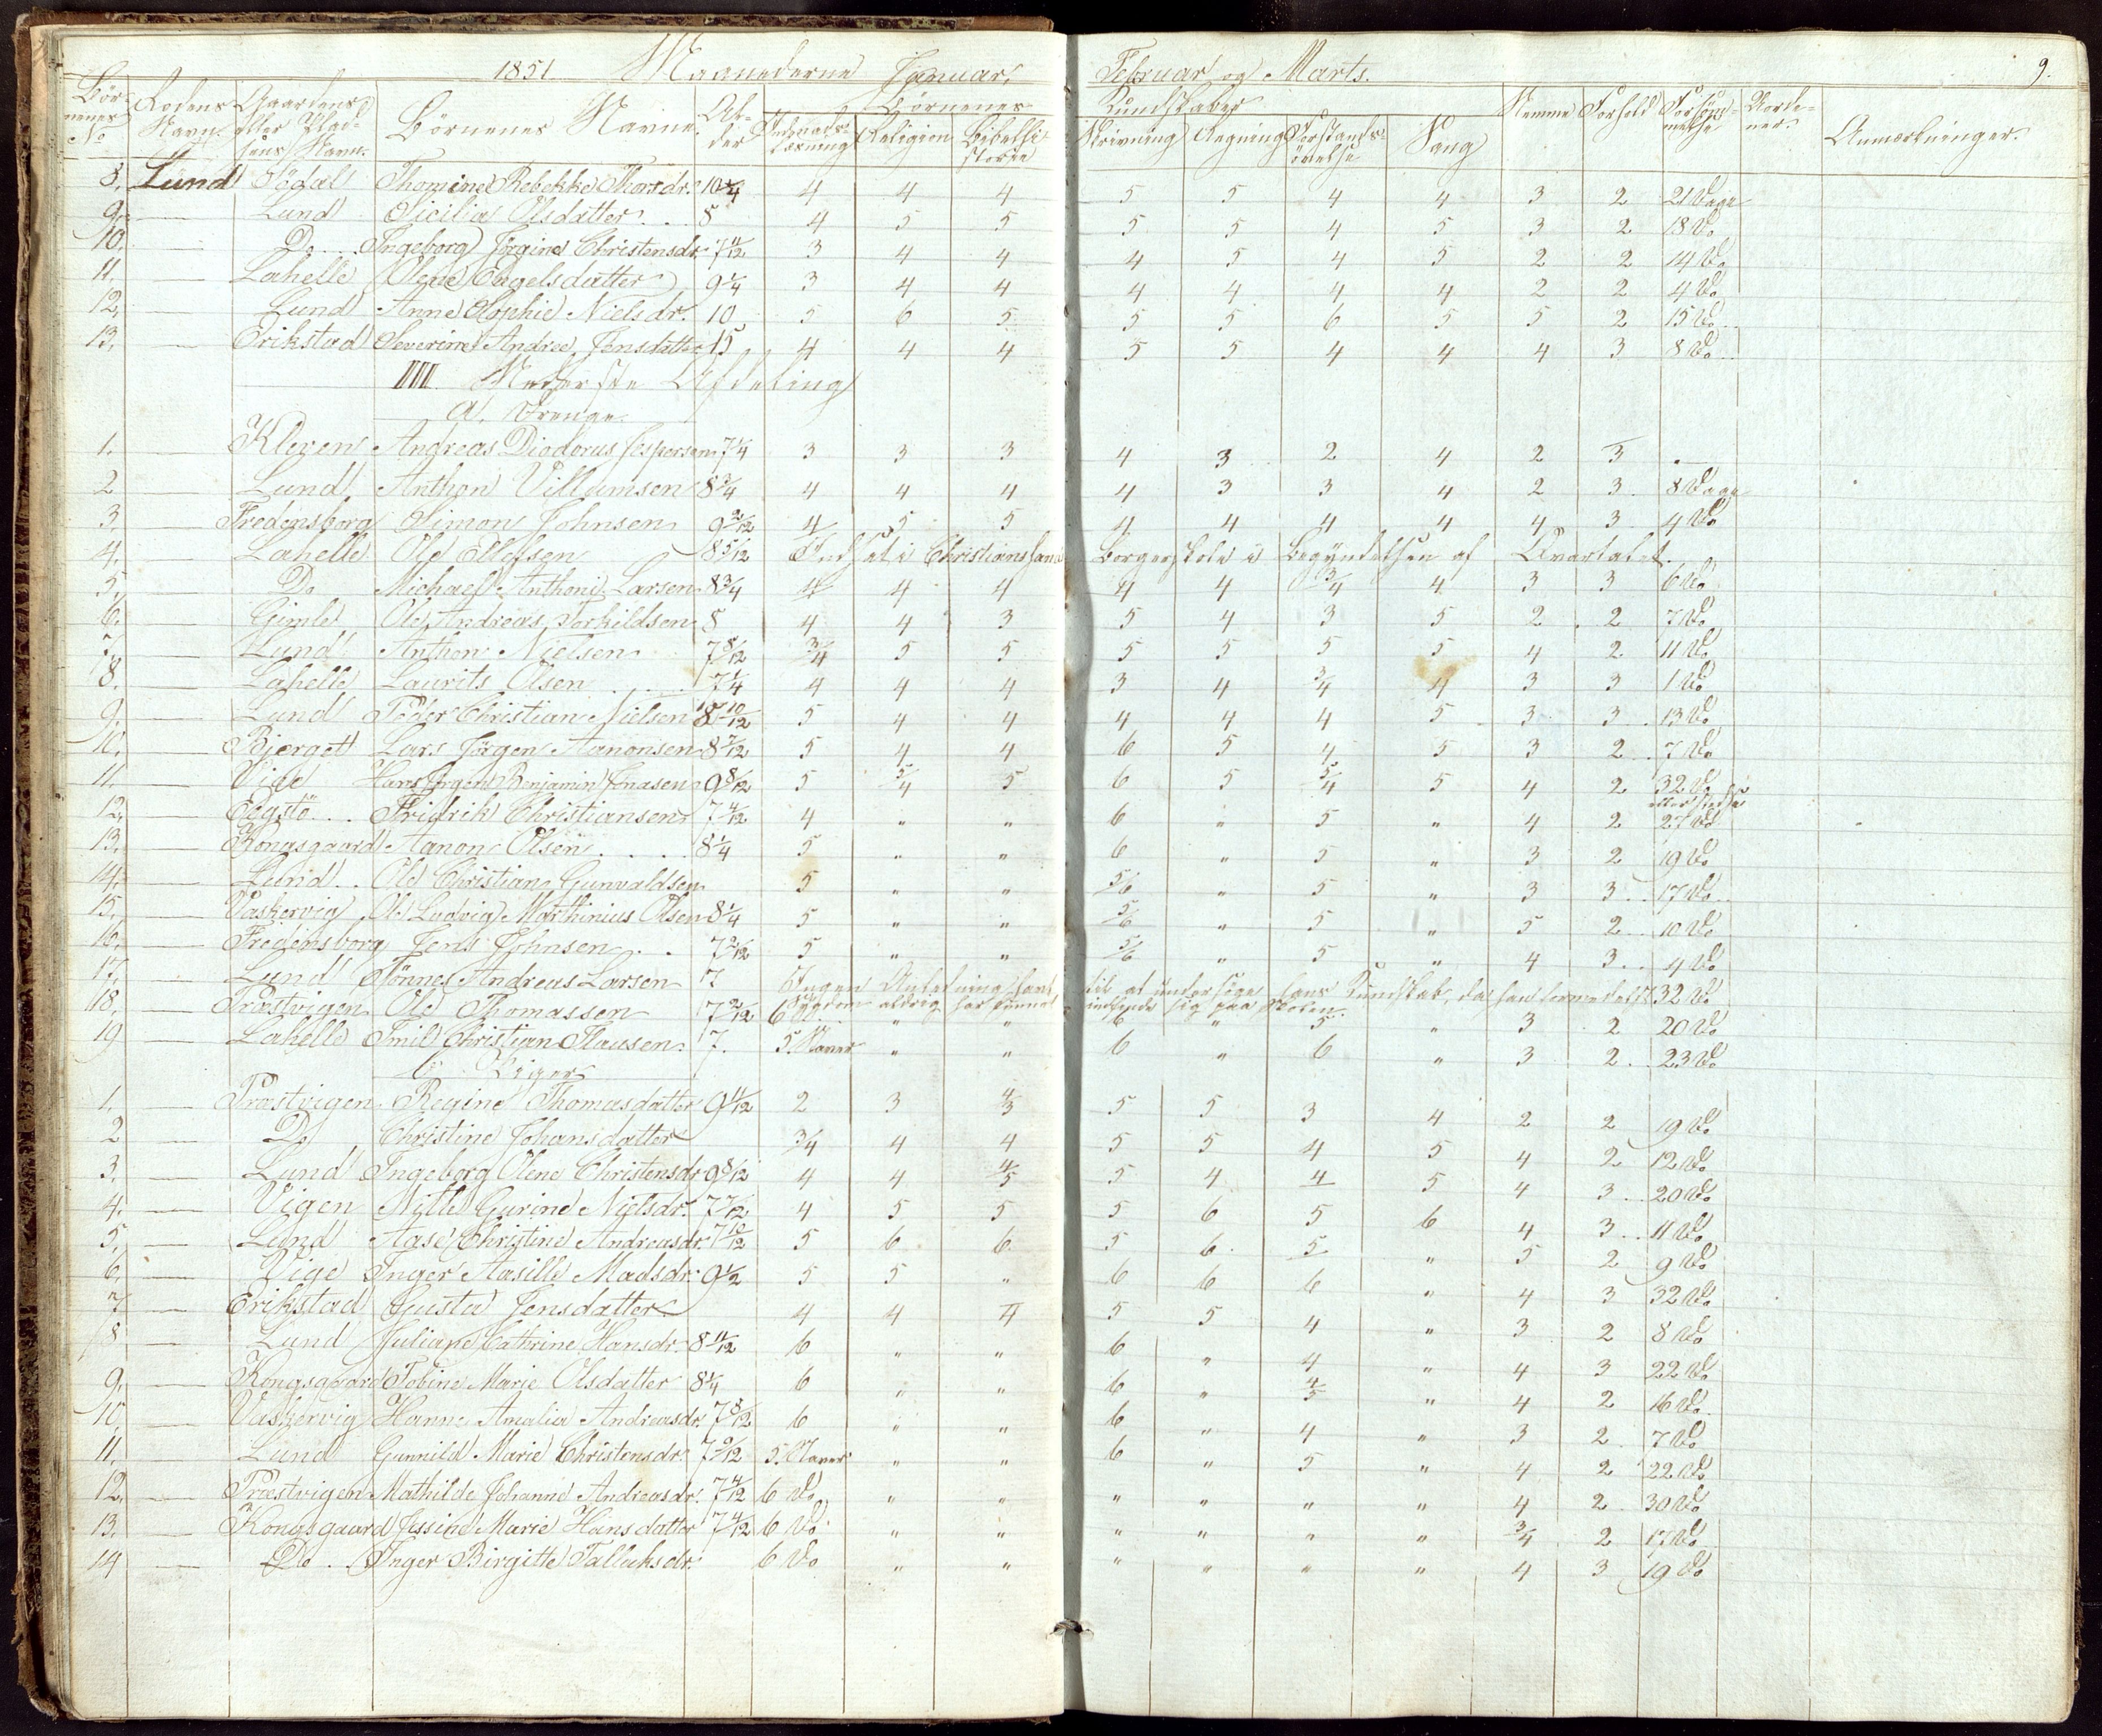 1851 Maanederne Januar, Februar og Marts. 9.
Børnenes No Rodens Navn. Gaardens eller Pladsens Navn. Børnenes Navne. Alder Børnenes Kundskaber Nemme Forhold Forsømmelse Anmærkninger.
Indenadslæsning Religion Bibelhistorie Skrivning Regning Forstandsøvelse Sang
8. Lund Södal Thomine Rebekke Thorsdr. 10 4 4 4 5 5 4 4 3 2 21 Dage
9. — Lund Sicilia Olsdatter 8 4 5 5 5 5 4 5 3 2 18 Do
10. — Do Ingeborg Jörgine Christensdr. 7 11/12 3 4 4 4 5 4 5 2 2 14 Do
11. — Lahelle Olene Engelsdatter 9 1/4 3 4 4 4 4 4 4 2 2 4 Do
12. — Lund Anne Sophie Nielsdr. 10 5 6 5 5 5 6 5 5 2 15 Do
13. — Erikstad Severine Andrea Jensdatter 15 4 4 4 5 5 4 4 4 3 8 Do
III Nederste Afdeling
a. Drenge.
1. — Kleven Andreas Diodorus Jespersen 7 1/4 3 3 3 4 3 2 4 2 3 —
2 — Lund Anthon Villumsen 8 3/4 4 4 4 4 3 3 4 2 3 8 Dage
3 — Fredensborg Simon Johnsen 9 2/12 4 5 5 4 4 4 4 4 3 4 Do
4. — Lahelle Ole Ellefsen 8 5/12 Indsat i Christiansand Borgerskole i Begyndelsen af Qvartalet.
5. — Do Michael Anthoni Larsen 8 3/4 4 4 4 4 4 3/4 4 3 3 6 Do
6. — Gimle Ole Andreas Torkildsen 8 4 4 3 5 4 3 5 2 2 7 Do
7. — Lund Anthon Nielsen 7 8/12 3/4 5 5 5 5 5 5 4 2 11 Do
8. — Lahelle Laurits Olsen 7 1/4 4 4 4 3 4 3/4 4 3 3 1 Do
9. — Lund Peder Christian Nielsen 8 10/12 5 4 4 4 4 4 5 3 3 13 Do
10. — Bjerget Lars Jörgen Aanonsen 8 7/12 5 4 4 6 5 4 5 3 2 7 Do
11. — Vige Hans Jörgen Benjamin Jonasen 9 8/12 5 5/4 5 6 5 5/4 5 4 2 32 Do
12. — Egstö Fridrik Christiansen 7 4/12 4 " " 6 " 5 " 4 2 27 Do
13. — Kongsgaard Aanon Olsen 8 1/4 5 " " 6 " 5 " 3 2 19 Do
14. — Lund Ole Christian Gunvaldsen 5 " " 5/6 " 5 " 3 3 17 Do
15. — Vaskervig Ole Ludvig Marthinius Olsen 8 1/4 5 " " 5/6 " 5 " 5 2 10 Do
16. — Fredensborg Jens Johnsen 7 2/12 5 " " 5/6 " 5 " 4 3 4 Do
17. — Lund Tönnes Andreas Larsen 7 Ingen Anledning havt til at undersöge hans Kundskab, da han formedelst 32 Do
Sygdom aldrig har kunnet indfinde sig paa Skolen.
18. — Præstvigen Ole Thomassen 7 2/12 6 " " 6 " 5 " 3 2 20 Do
19 — Lahelle Emil Christian Clausen 7. 5. Naver " " 6 " 6 " 3 2 23 Do
b. Piger
1. — Præstvigen Regine Thomasdatter 9 11/12 2 3 4/3 5 5 3 4 2 2 19 Do
2 — Do Christine Johansdatter 3/4 4 4 5 5 4 5 4 2 12 Do
3. — Lund Ingeborg Olene Christensdr. 9 8/12 4 4 4/5 5 4 4 5 4 3 20 Do
4. — Vigen Nille Gurine Nielsdr. 7 7/12 4 5 5 5 6 5 6 4 3 11 Do
5. — Lund Aase Christine Andreasdr. 7 10/12 5 6 6 5 6 5 " 5 2 9 Do
6. — Vige Inger Aasille Madsdr. 9 1/2 5 5 " 6 6 6 " 4 3 32 Do
7 — Erikstad Gusta Jensdatter 4 4 4 5 5 4 " 3 2 8 Do
8 — Lund Juliane Cathrine Hansdr. 8 11/12 6 " " 6 " 4 " 4 3 22 Do
9. — Kongsgaard Tobine Marie Olsdatter 8 1/4 6 " " 6 " 4/5 " 4 2 16 Do
10. — Vaskervig Hanne Amalia Andreasdr. 7 8/12 6 " " 6 " 4 " 3 2 7 Do
11. — Lund Gunnild Marie Christensdr. 7 9/12 5. Naver " " 6 " 5 " 4 2 22 Do
12. — Præstvigen Mathilde Johanne Andreasdr. 7 4/12 6 Do " " " " " " 4 2 30 Do
13. — Kongsgaard Jessine Marie Hansdatter 7 4/12 6 Do " " " " " " 3/4 2 17 Do
14 — Do Inger Birgitte Tallaksdr. 6 Do " " " " " " 4 3 19 Do